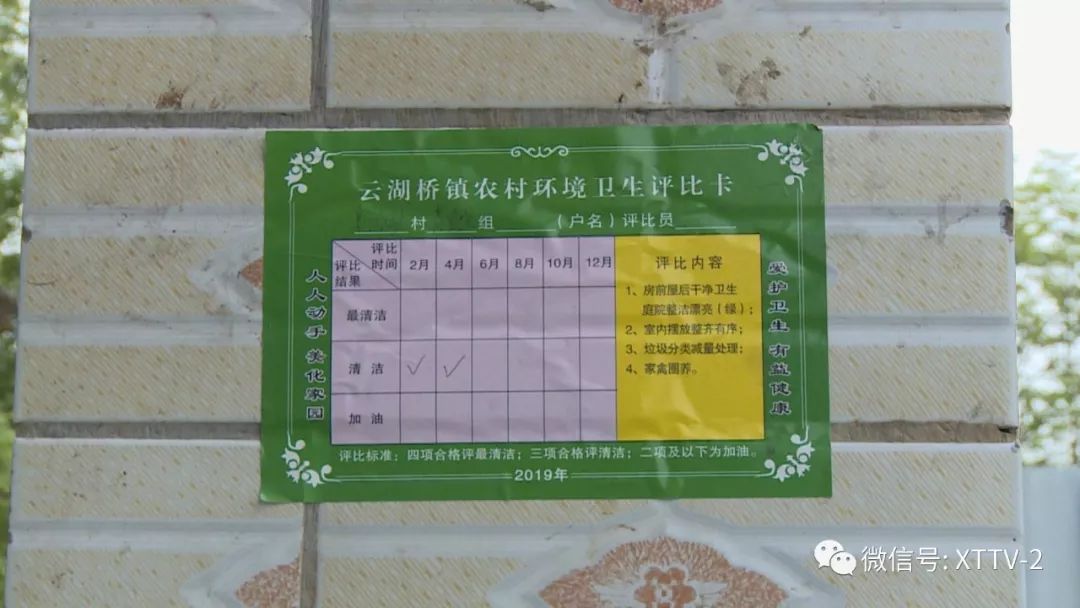 云湖桥镇农村环境卫生评比卡
村 组 （户名）评比员
人人动手 美化家园
评比时间 评比结果 2月 4月 6月 8月 10月 12月
最清洁
清洁 ✓ ✓
加油
评比内容
1、房前屋后干净卫生
庭院整洁漂亮（绿）；
2、室内摆放整齐有序；
3、垃圾分类减量处理；
4、家禽圈养。
爱护卫生 有益健康
评比标准：四项合格评最清洁；三项合格评清洁；二项及以下为加油。
2019年
微信号: XTTV-2